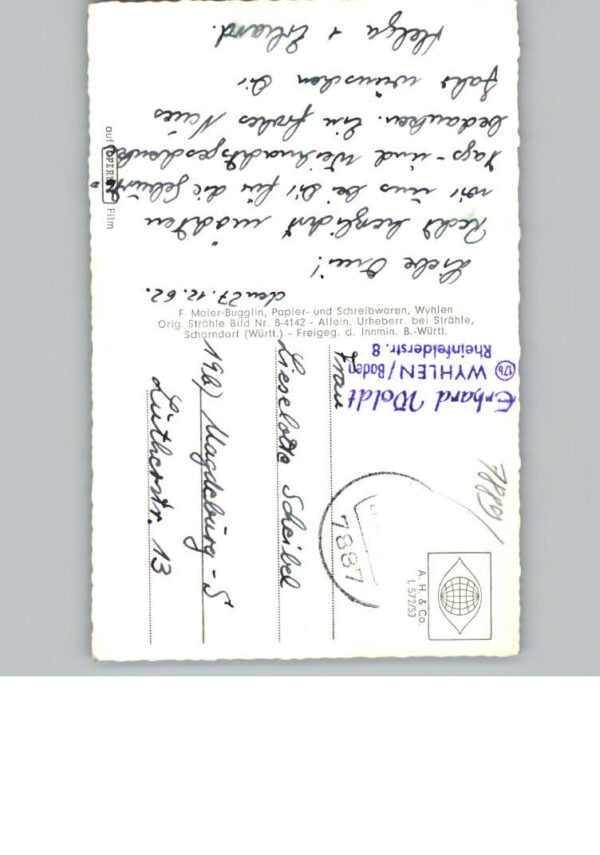 den 27.12.62.
Liebe Omi!
Recht herzlichst möchten
wir uns bei Dir für die Geburts-
tags- und Weihnachtsgeschenke
bedanken. Ein frohes Neues
Jahr wünschen Dir
Helga + Erhard.
auf PERUTZ Film
F. Maier-Bugglin, Papier- und Schreibwaren, Wyhlen
Orig. Strähle Bild Nr. 8-4142 - Allein. Urheberr. bei Strähle,
Schorndorf (Württ.) - Freigeg. d. Innmin. B.-Württ.
Erhard Woldt
17b WYHLEN/Baden
Rheinfelderstr. 8
7887
A. H. & Co.
L 572/53
Frau
Lieselotte Scheibel
19b) Magdeburg-S
Lutherstr. 13